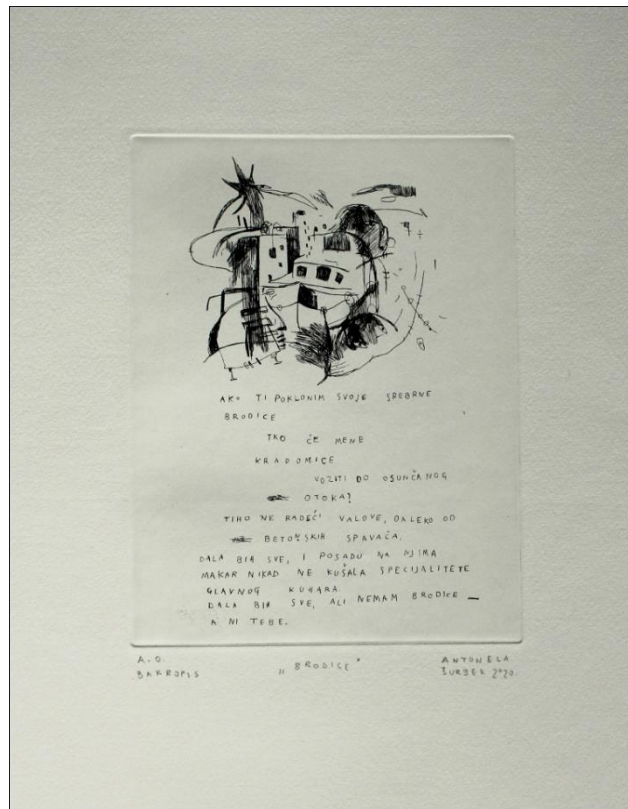 AKO TI POKLONIM SVOJE SREBRNE
BRODICE
TKO ĆE MENE
KRADOMICE
VOZITI DO OSUNČANOG
OTOKA?
TIHO NE RADEĆI VALOVE, DALEKO OD
BETONSKIH SPAVAČA.
DALA BIH SVE, I POSADU NA NJIMA
MAKAR NIKAD NE KUŠALA SPECIJALITETE
GLAVNOG KUHARA.
DALA BIH SVE, ALI NEMAM BRODICE —
A NI TEBE.
A.O. „BRODICE" ANTONELA
BAKROPIS ŠURBEK 2020.